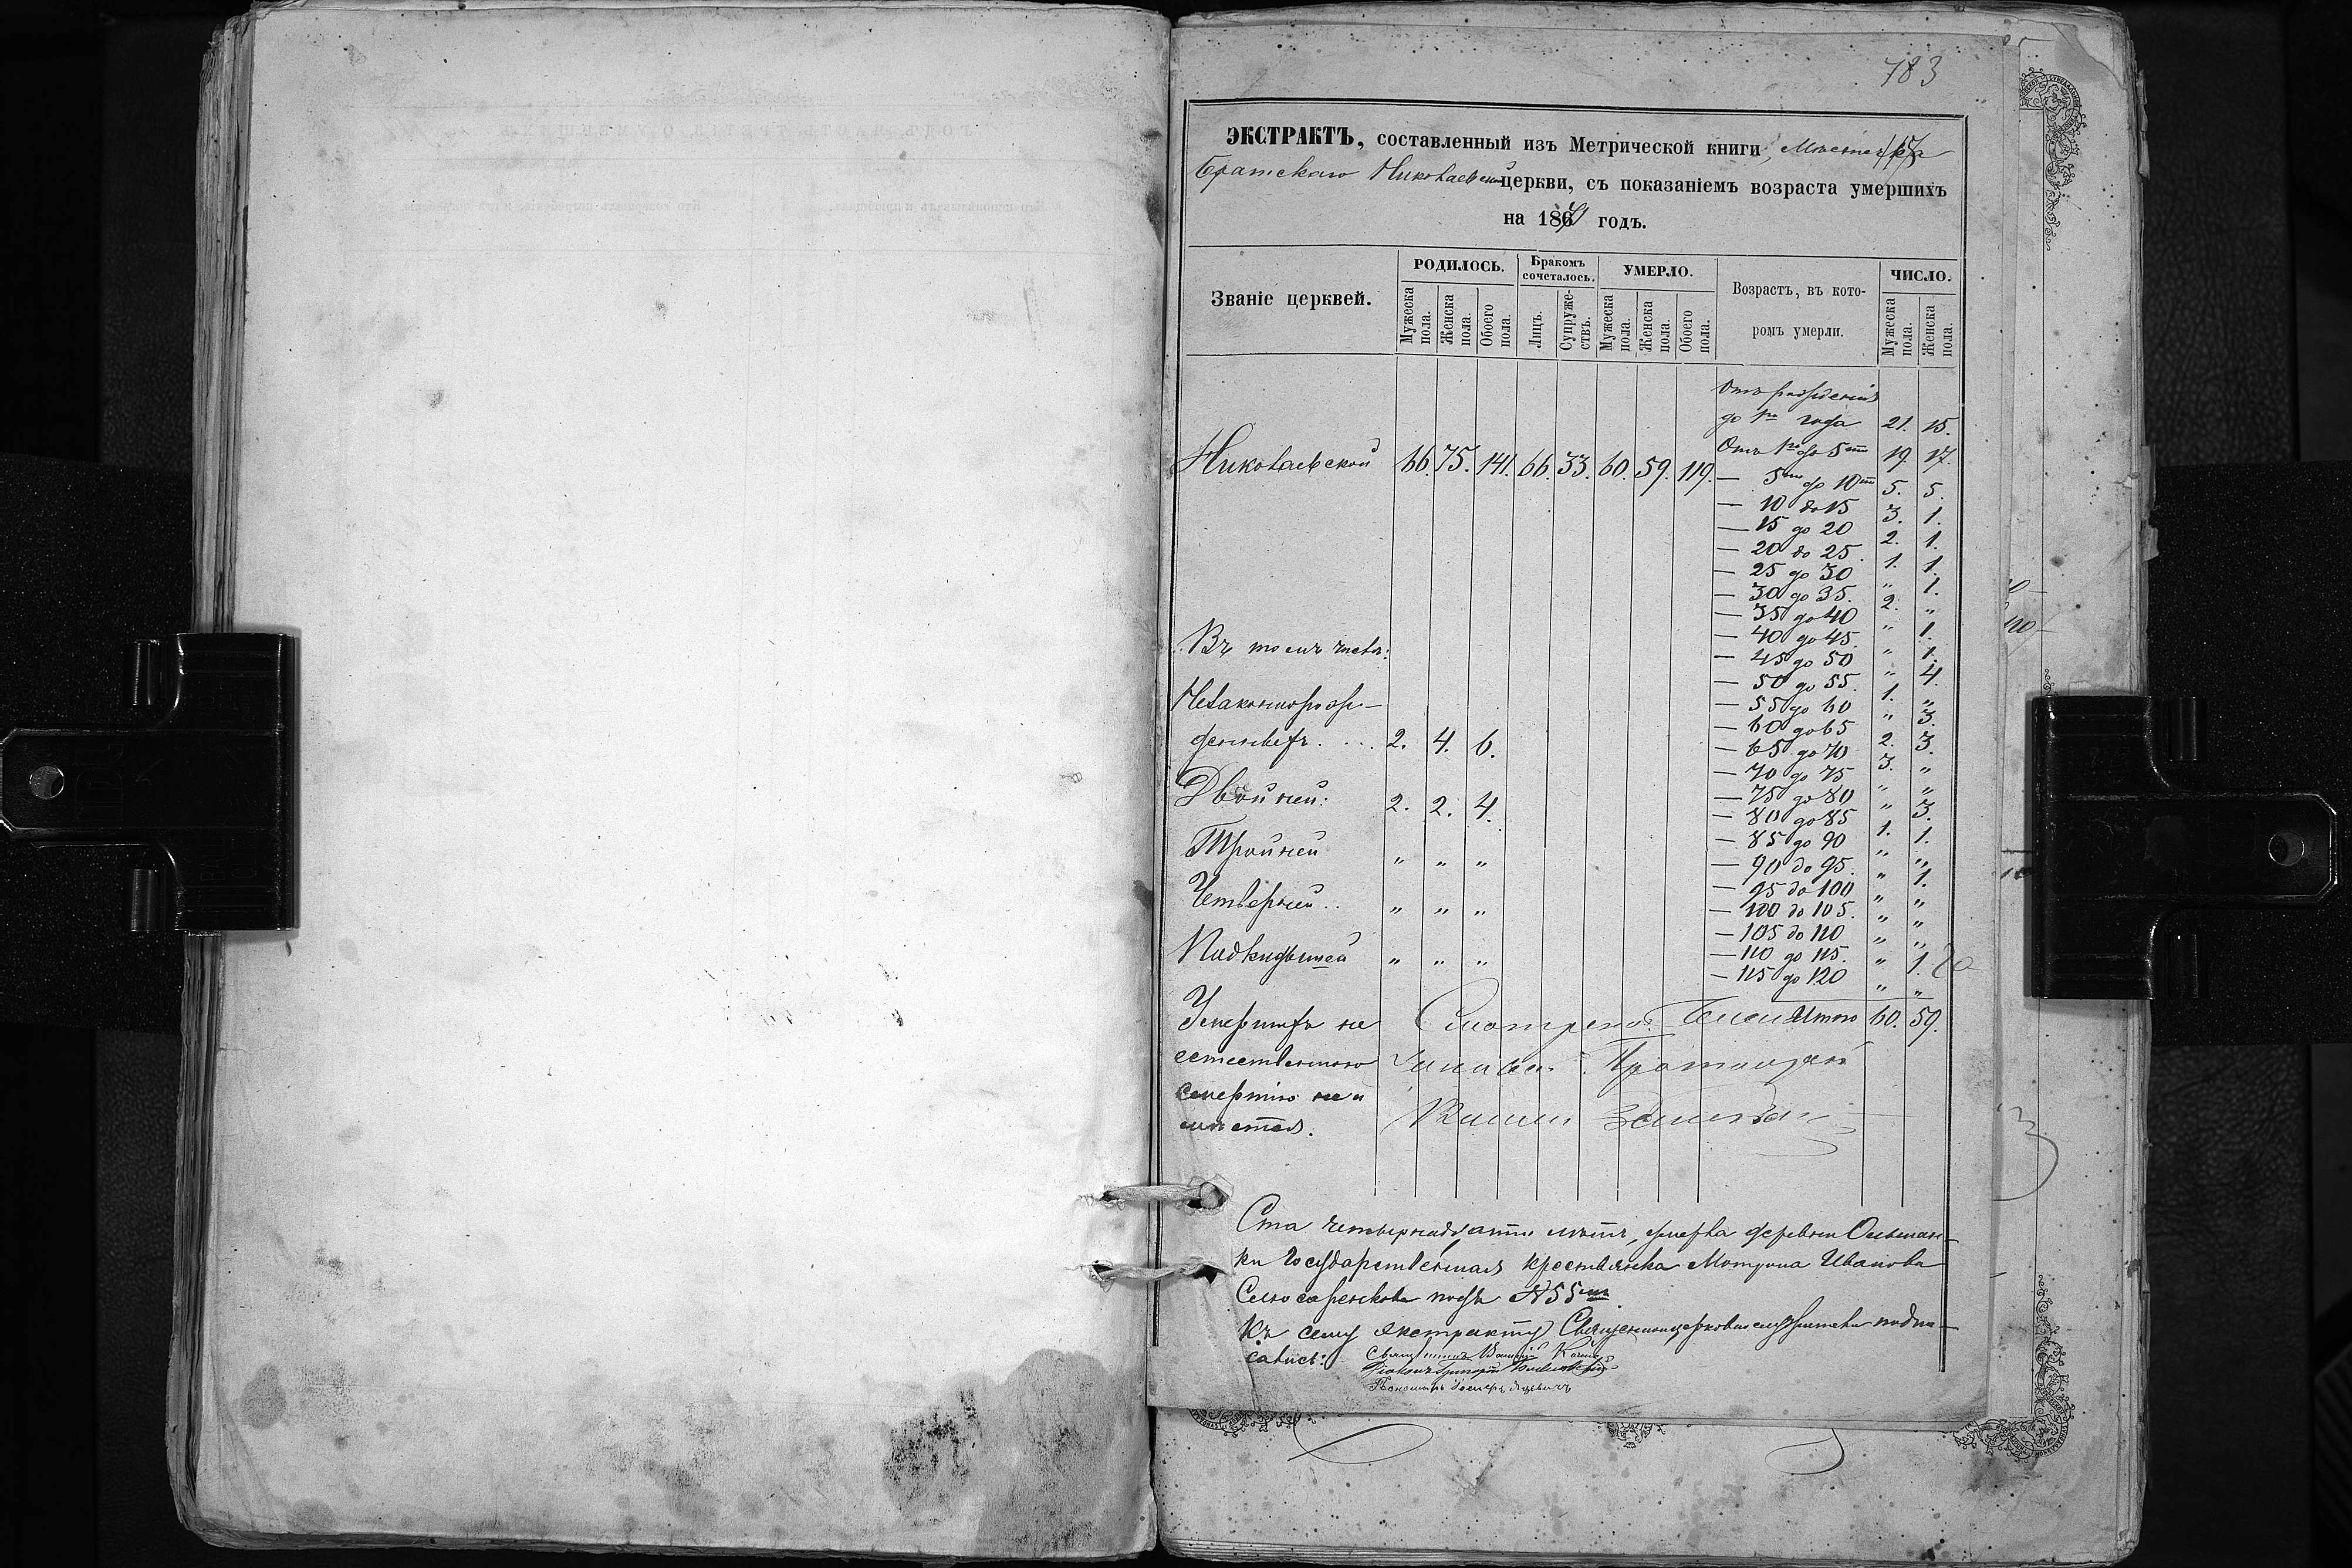 783
ЭКСТРАКТЪ, составленный изъ Метрической книги, Мѣстечка
Братскаго Николаевской церкви, съ показаніемъ возраста умершихъ
на 186 годъ.
Званіе церквей. РОДИЛОСЬ. Бракомъ сочеталось. УМЕРЛО. Возрастъ, въ кото-ромъ умерли. ЧИСЛО.
Мужеска пола. Женска пола. Обоего пола. Лицъ. Супруже-ствъ. Мужеска пола. Женска пола. Обоего пола. Мужеска пола. Женска пола.
Отъ рожденія
до 1го года 21. 15.
Отъ 1го до 5ти 19. 17.
Николаевской 66. 75. 141. 66. 33. 60. 59. 119.
— 5ти до 10ти 5. 5.
— 10 до 15 3. 1.
— 15 до 20 2. 1.
— 20 до 25. 1. 1.
— 25 до 30 " 1.
— 30 до 35. 2. "
— 35 до 40 " 1.
— 40 до 45. " 1.
— 45 до 50 " 4.
— 50 до 55. 1. "
— 55 до 60 " 3.
— 60 до 65 2. 3.
— 65 до 70 3. "
— 70 до 75 " "
— 75 до 80 " 3.
— 80 до 85 1. 1.
— 85 до 90 " "
— 90 до 95. " 1.
— 95 до 100 " "
— 100 до 105. " "
— 105 до 110 " "
— 110 до 115. " 1.
— 115 до 120 " "
Итого 60. 59.
Въ томъ числѣ:
Незаконнорож-
денныхъ.... 2. 4. 6.
Двойней: 2. 2. 4.
Тройней " " "
Четверней.. " " "
Подкидышей " " "
Умершихъ не
естественною
смертію не и
мѣется.
Смотрелъ
Ста четырнадцати лѣтъ, умерла деревни Ольшан-
ки Государственная крестьянка Мотрона Иванова
Слюсаренкова подъ №55мъ
Къ сему экстракту Священноцерковнослужители подпи-
сались: Священникъ Василій
Діаконъ Григорій
Пономарь